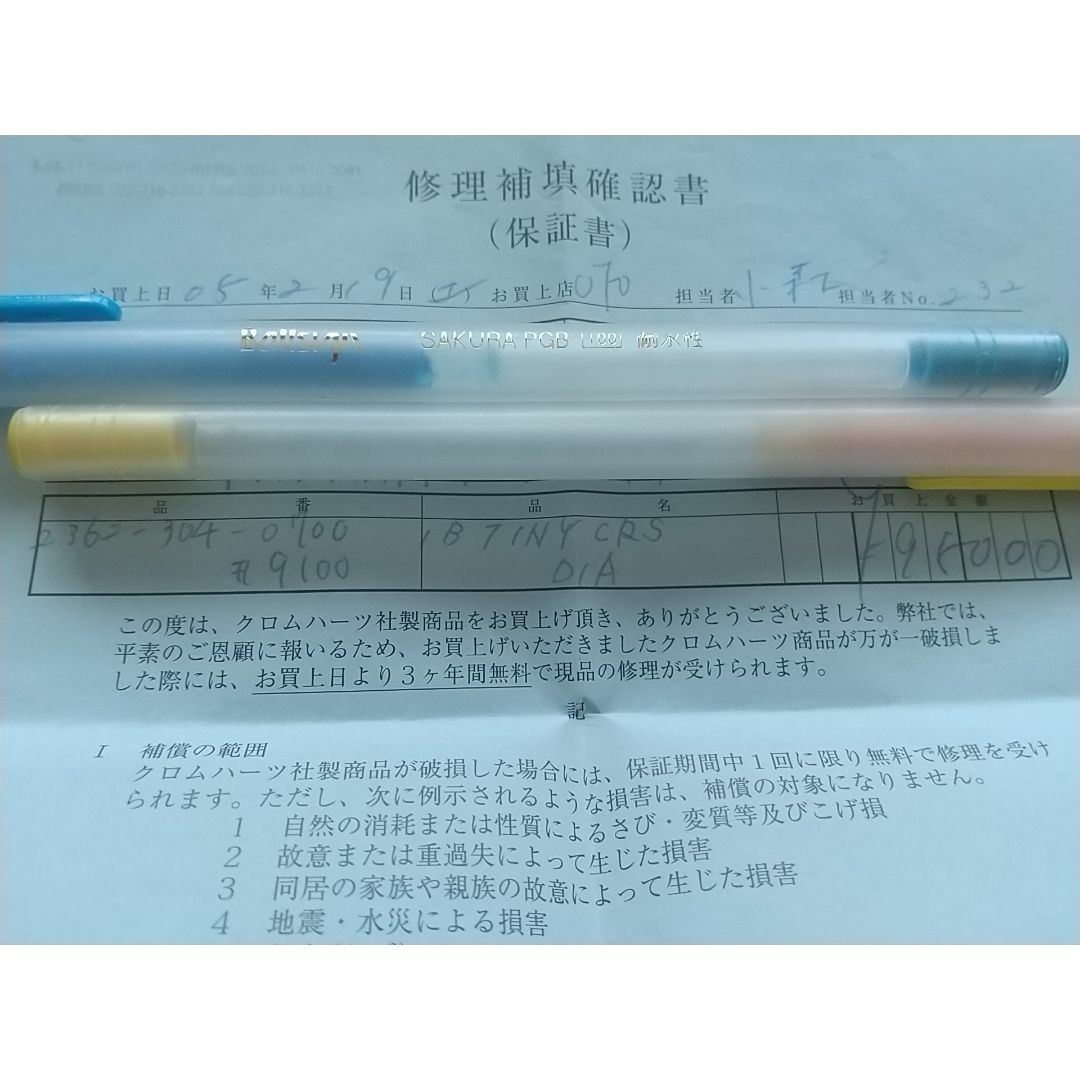 修理補填確認書
(保証書)
お買上日 05 年 2 月 19 日 お買上店 070 担当者 担当者No. 232
Ballsign SAKURA PGB 100 耐水性
品番 品名 お買上金額
2362-304-0900 1B TINY CRS ¥95000
#9100 DIA
この度は、クロムハーツ社製商品をお買上げ頂き、ありがとうございました。弊社では、
平素のご恩顧に報いるため、お買上げいただきましたクロムハーツ商品が万が一破損しま
した際には、お買上日より3ヶ年間無料で現品の修理が受けられます。
記
I 補償の範囲
クロムハーツ社製商品が破損した場合には、保証期間中1回に限り無料で修理を受け
られます。ただし、次に例示されるような損害は、補償の対象になりません。
1 自然の消耗または性質によるさび・変質等及びこげ損
2 故意または重過失によって生じた損害
3 同居の家族や親族の故意によって生じた損害
4 地震・水災による損害